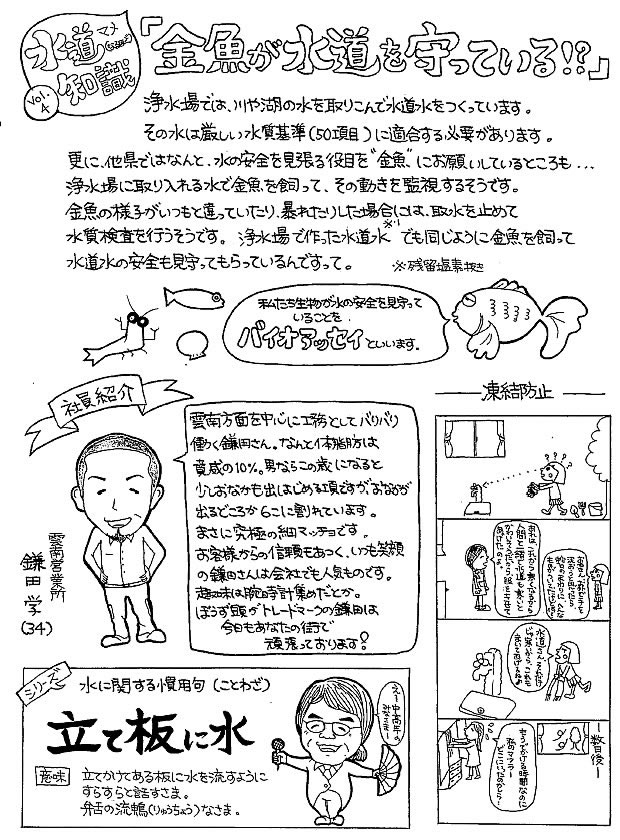 水道マメ知識
Vol.4
「金魚が水道を守っている!?」
浄水場では、川や湖の水を取りこんで水道水をつくっています。
その水は厳しい水質基準(50項目)に適合する必要があります。
更に、他県ではなんと、水の安全を見張る役目を"金魚"にお願いしているところも...
浄水場に取り入れる水で金魚を飼って、その動きを監視するそうです。
金魚の様子がいつもと違っていたり、暴れたりした場合には、取水を止めて
水質検査を行うそうです。浄水場で作った水道水※でも同じように金魚を飼って
水道水の安全も見守ってもらっているんですって。
※残留塩素抜き
私たち生物が水の安全を見守って
いることを
バイオアッセイといいます。
社員紹介
雲南営業所
鎌田 学
(34)
雲南方面を中心に工務としてバリバリ
働く鎌田さん。なんと体脂肪は
驚威の10%。男ならこの歳になると
少しおなかも出はじめる頃ですが、おなかが
出るどころか6こに割れています。
まさに究極の細マッチョです。
お客様からの信頼もあつく、いつも笑顔
の鎌田さんは会社でも人気ものです。
趣味は腕時計集めだとか。
ぼうず頭がトレードマークの鎌田は
今日もあなたの街で
頑張っております!
凍結防止
????
水道さんそれだけ
じゃ寒いから、これも
まいてあげるね
―数日後―
もうでかける時間なのに
私のマフラー
どこにいったのかしら…
シリーズ
水に関する慣用句(ことわざ)
立て板に水
意味
立てかけてある板に水を流すように
すらすらと話すさま。
弁舌の流暢(りゅうちょう)なさま。
えー中高年の
みなさまー